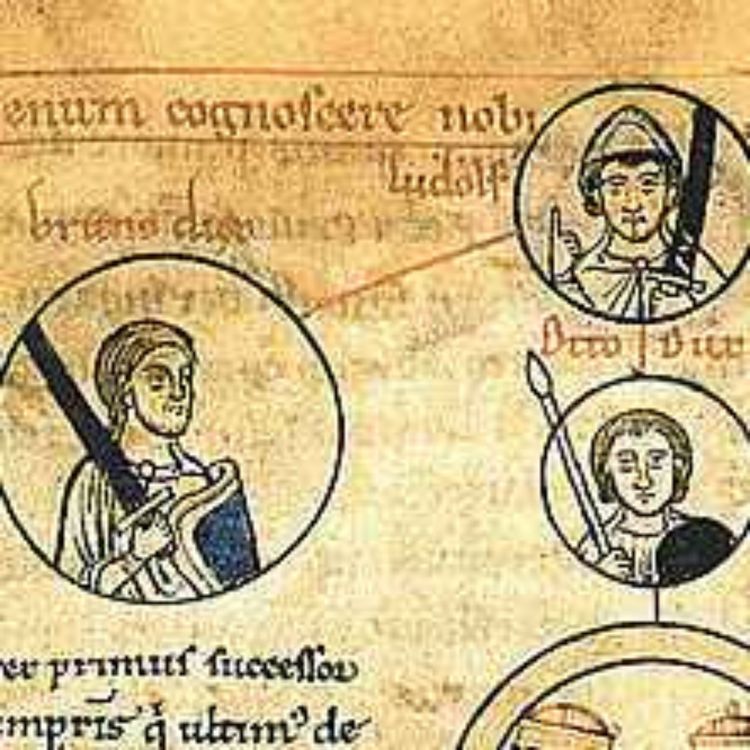 enum cognoscere nobi
ludolf
bruno dux
Otto dux
primus successor
impris q̄ ultim⁹ de